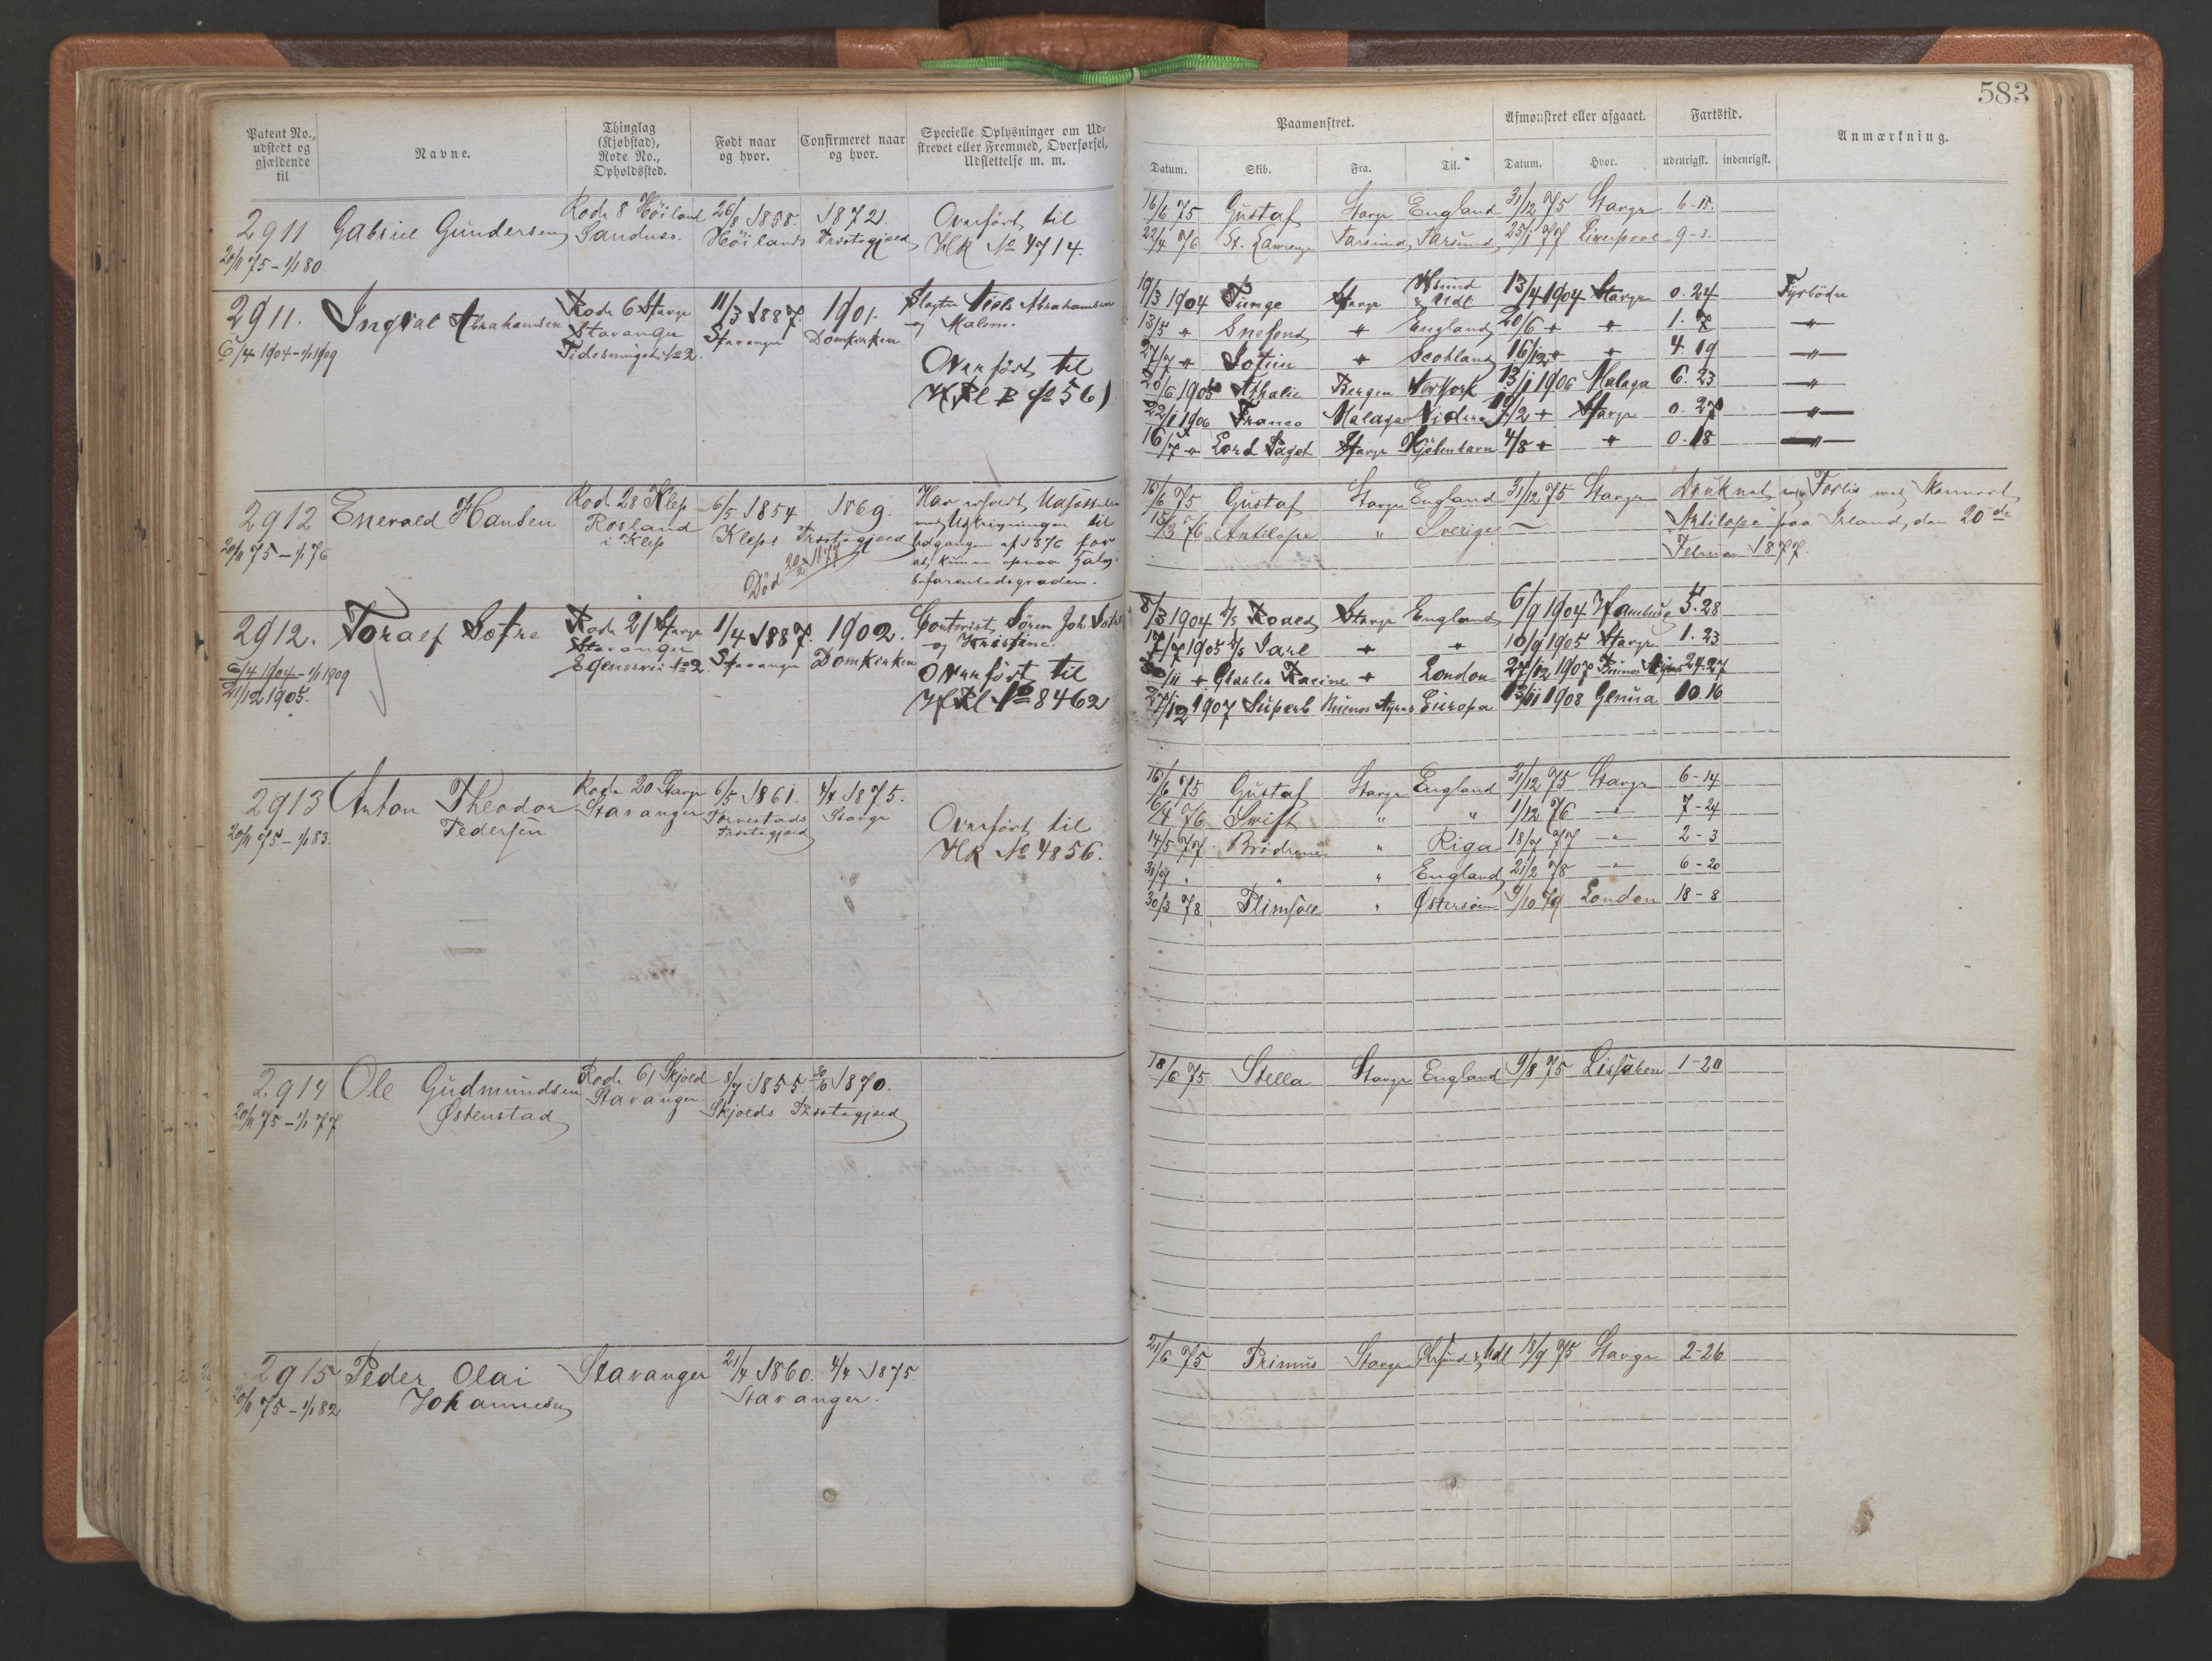 583
Patent No., udstedt og gjældende til
Navne.
Thinglag (Kjøbstad), Rode No., Opholdssted.
Født naar og hvor.
Confirmeret naar og hvor.
Specielle Oplysninger om Udskrevet eller Fremmed, Overførsel, Udslettelse m. m.
Paamønstret.
Datum. Skib. Fra. Til.
Afmønstret eller afgaaet.
Datum. Hvor.
Fartstid.
udenrigsk. indenrigsk.
Anmærkning.
2911 Gabriel Gundersen Rode 8 Höiland 26/8 1858. 1872. Overført til
20/11 75 - 1/1 80. Sandnes. Höilands Præstegjæld HR No 4714.
16/6 75 Gustaf Stavgr England 31/12 75 Stavgr 6-15.
22/4 76 St. Lawrence Farsund Farsund 25/1 77 Liverpool 9-3.
2911. Ingval Abrahamsen Rode 6 Stavgr 11/3 1887. 1901. Slagter Niels Abrahamsen
6/4 1904 - 1/1 1909 Stavanger Stavanger Domkirken og Malene.
No 2.
Overført til
HRl B No 561
19/3 1904 Tunge Stavgr & Udl. 13/4 1904 Stavgr 0. 24 Fyrbøder
13/5 " Snefond " England 20/6 " " 1. 7 "
27/7 " " Scotland 16/12 " " 4. 19 "
20/6 1905 Athalie Bergen NewYork 13/1 1906 Malaga 6. 23 "
22/1 1906 Franco Malaga /2 " Stavgr 0. 27 "
16/7 " Lord Paget Stavgr Kjöbenhavn 4/8 " " 0. 18 "
2912 Enevald Hansen Rode 28 Klep 6/5 1854 1869.
20/11 75 - 1/1 76 Rosland i Klep Kleps Præstegjæld
Død 20/2 1877
Har erholdt Udsættelse
med Udskrivningen til
Udgangen af 1876 for
at kunne opnaa
befarenhedsgraden.
16/6 75 Gustaf Stavgr England 31/12 75 Stavgr Druknet ved Forlis med Skonnert
15/3 76 Antilope " Sverige — "Antilope" paa Irland, den 20de
Februar 1877.
2912. Toralf Sætre Rode 21 Stavgr 1/4 1887. 1902. Contorist Sören Joh. Sætre
6/4 1904 - 1/1 1909 Stavanger Stavanger Domkirken og Kristine.
21/12 1905. No 2
Overført til
HRl No 8462
8/3 1904 D/S Roald Stavgr England 6/9 1904 Hamburg 5. 28
17/7 1905 D/S Jarl " " 10/9 1905 Stavgr 1. 23
30/11 " Charles Racine " London 27/12 1907 Buenos Ayres 24. 27
27/12 1907 Superb Buenos Ayres Europa 13/11 1908 Genua 10. 16
2913 Anton Theodor Rode 20 Stavgr 6/5 1861. 4/4 1875.
20/11 75 - 1/1 83. Pedersen Stavanger Torvestads Præstegjæld Stavgr
Overført til
HR No 4856.
16/6 75 Gustaf Stavgr England 31/12 75 Stavgr 6-14
6/4 76 Swift " " 1/12 76 " 7-24
14/5 77 Brødrene " Riga 18/7 77 " 2-3
31/7 " " " England 21/2 78 " 6-20
30/3 78 Plimsoll " Østersöen 9/10 79 London 18-8
2914 Ole Gudmundsen Rode 61 Skjold 8/7 1855 30/6 1870.
20/11 75 - 1/1 77 Østenstad Stavanger. Skjolds Præstegjæld
18/6 75 Stella Stavgr England 9/8 75 Lissabon 1-20
2915 Peder Olai Stavanger 21/4 1860. 4/4 1875.
20/11 75 - 1/1 82 Johannesen Stavanger.
21/6 75 Primus Stavgr & Udl 18/9 75 Stavgr 2-26